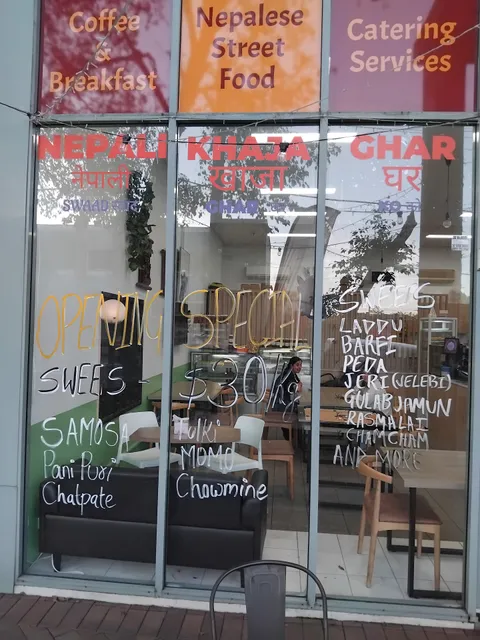 Coffee
&
Breakfast
Nepalese
Street
Food
Catering
Services
NEPALI KHAJA GHAR
नेपाली खाजा घर
SWAAD GHAR KO
OPENING SPECIAL
SWEES - $30/kg
SAMOSA
Pani Puri
Chatpate
Tulki
MOMO
Chowmine
SWEETS
LADDU
BARFI
PEDA
JERI (JELEBI)
GULAB JAMUN
RASMALAI
CHAM CHAM
AND MORE